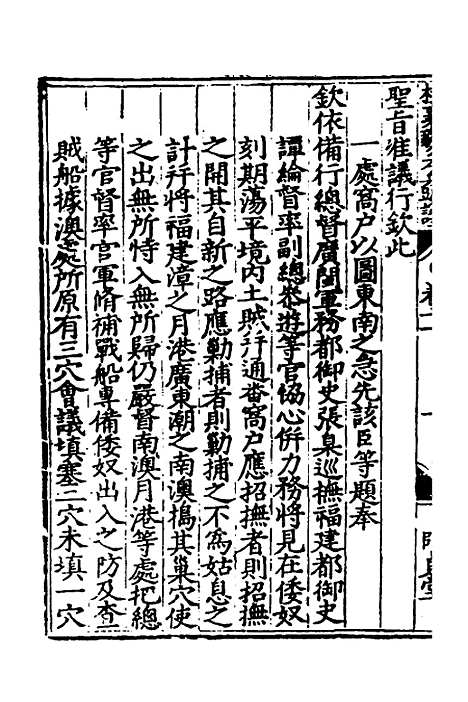 聖旨准議行欽此
一處窩户以圖東南之急先該臣等題奉
欽依備行總督廣閩軍務都御史張臬巡撫福建都御史
譚綸督率副總叅遊等官協心併力務將見在倭奴
刻期蕩平境内土賊幷通番窩户應招撫者則招撫
之開其自新之路應勦捕者則勦捕之不爲姑息之
計幷將福建漳之月港廣東潮之南澳搗其巢穴使
之出無所恃入無所歸仍嚴督南澳月港等處把總
等官督率官軍脩補戰船專備倭奴出入之防及查
賊船據澳處所原有三穴會議填塞二穴未填一穴